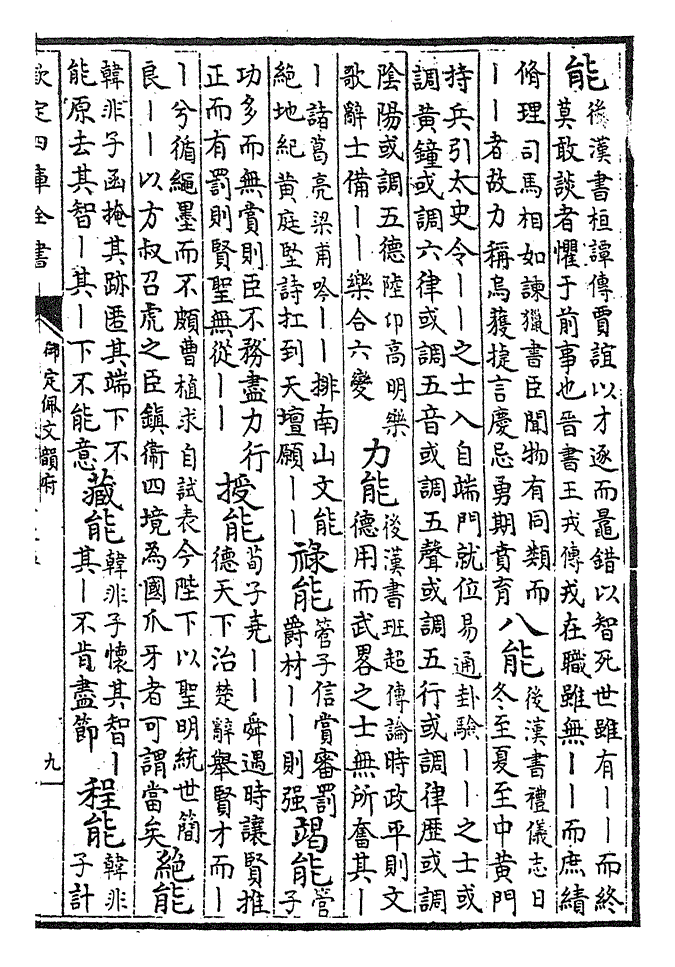 能
後漢書桓譚傳賈誼以才逐而鼂錯以智死世雖有〡〡而終
莫敢談者懼于前事也晉書王戎傳戎在職雖無〡〡而庶績
脩理司馬相如諫獵書臣聞物有同類而
〡〡者故力稱烏獲捷言慶忌勇期賁育
八能
後漢書禮儀志日
冬至夏至中黄門
持兵引太史令〡〡之士入自端門就位易通卦驗〡〡之士或
調黄鐘或調六律或調五音或調五聲或調五行或調律歷或調
陰陽或調五德陸卬高明樂
歌辭士備〡〡樂合六變
力能
後漢書班超傳論時政平則文
德用而武畧之士無所奮其〡
〡諸葛亮梁甫吟〡〡排南山文能
絕地紀黄庭堅詩扛到天壇願〡〡
祿能
管子信賞審罰
爵材〡〡則强
竭能
管
子
功多而無賞則臣不務盡力行
正而有罰則賢聖無從〡〡
授能
荀子堯〡〡舜遇時讓賢推
德天下治楚辭舉賢才而〡
〡兮循繩墨而不頗曹植求自試表今陛下以聖明統世簡
良〡〡以方叔召虎之臣鎮衞四境為國爪牙者可謂當矣
絕能
韓非子函掩其跡匿其端下不
能原去其智〡其〡下不能意
藏能
韓非子懷其智〡
其〡不肯盡節
程能
韓非
子計
欽定四庫全書
御定佩文韻府
九